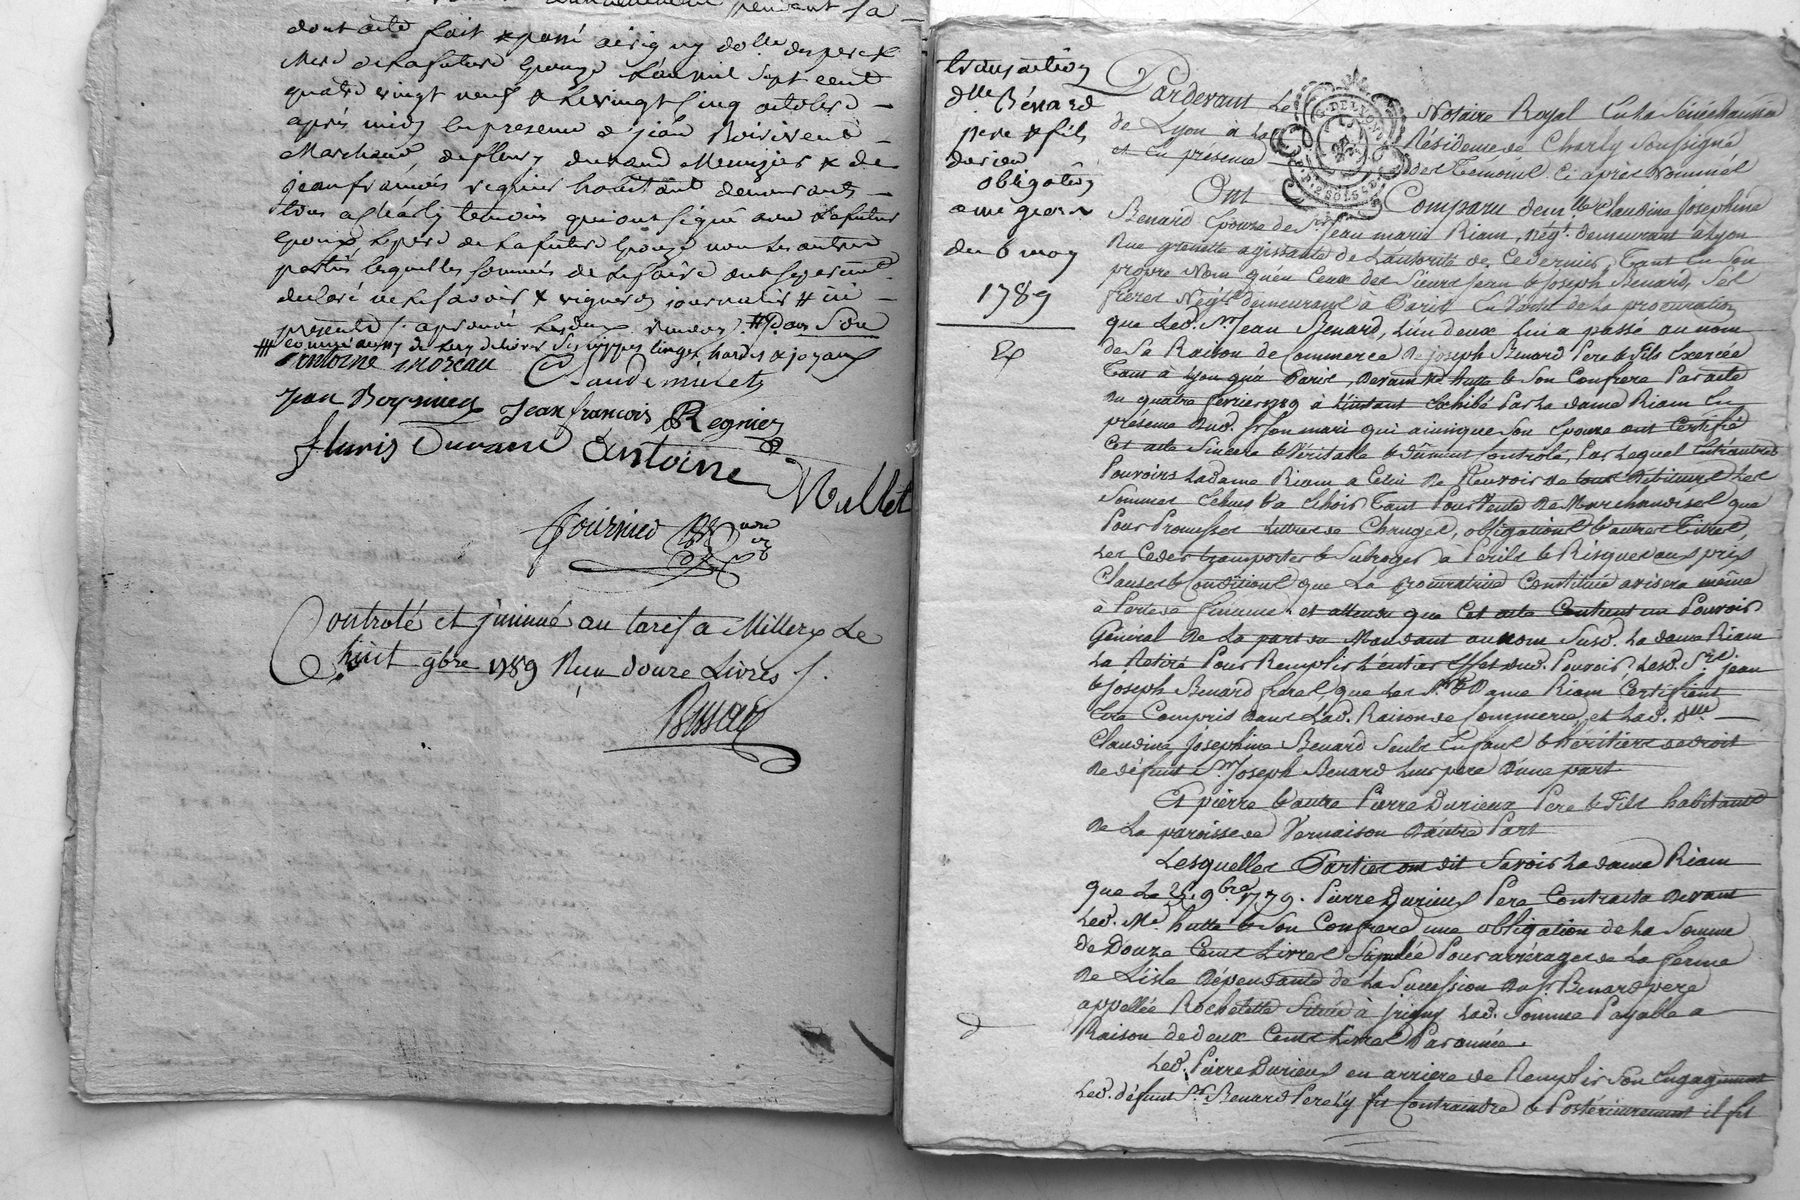 dont acte fait & passé a irigny dolle des pere &
mere de la future Epouze L'an mil sept cent
quatre vingt neuf & le vingt cinq octobre
après midy en presence de jean Boirivent
Marchand, de fleury durand Meunzier & de
jean françois regnier habitant demeurants
tous a Charly temoins qui ont signé avec le futur
Epoux le pere de la future Epouze non les autres
parties lesquelles sommés de le faire ont separement
declaré ne le savoir & vigneron journalier ici
presente / aprouvé les deux renvoy # Dans Son
Antoine moreau Claude milet
jean Boyrivien Jean françois Regnier
fleuris Durand Antoine
Mullet
fournier
Controlé et jnsinué au tarif a Millery Le
huit 9bre 1789 Reçu douze Livres /.
transaction
dlle Bénard
pere & fils
durieu
obligation
a me grosse
du 6 may
1789
Ex
G. DE LYON
2 SOLS
Pardevant Le Notaire Royal En la Sénéchaussée
de Lyon à la Résidence de Charly Soussigné
et En présence des Témoins Ci après Nommés
Ont Comparu demlle Claudine Josephine
Benard Epouse de Sr Jean marie Riam, Négt. demeurant a Lyon
Rue grenette agissante de L'autorité de Ce dernier, Tant En Son
propre Nom qu'en Ceux des Sieurs Jean & Joseph Benard, Ses
freres Négts demeurans a Paris En Vertu de La procuration
que Led. Sr. Jean Benard, L'un d'eux Lui a passé au nom
de Sa Raison de Commerce de joseph Benard Pere & Fils Exercée
Tant à Lyon qu'à Paris, Devant Me hutte & Son Confrere Par acte
du quatre fevrier 1789 à L'instant Exhibé Par La dame Riam En
présence dud. Sr Son mari qui ainsi que Son Epouse ont Certifié
Cet acte Sincere & Véritable & dûment Controlé, Par Lequel Entrautres
Pouvoirs La dame Riam a Celui de Recevoir de tous Debiteurs Les
Sommes Echues & a Echoir Tant Pour Vente de Marchandises que
Pour Promesses Lettres de Changes, obligations & autres Titres
Les Ceder transporter & Subroger a Perils & Risques aux prix
Clauses & Conditions que La procuratrice Constituée avisera même
à Perte de finance et attendu que Cet acte Contient un Pouvoir
Général de La part du Mandant au nom Susd. La dame Riam
La Retiré Pour Remplir L'entier Effet dud. Pouvoir, Lesd. Srs. jean
& Joseph Benard freres que Les Sr & Dame Riam Certifient
Etre Compris dans Lad. Raison de Commerce, et Lad. Dlle
Claudine Joséphine Benard Seuls Enfans & héritiers de droit
de défunt Sr Joseph Benard Leur pere D'une part
Et pierre & autre Pierre Durieux Pere & Fils habitants
de La paroisse de Vernaison D'autre Part
Lesquelles Parties ont dit Savoir La dame Riam
que Le 25. 9bre 1779. Pierre Durieux Pere Contracta Devant
Led. Me hutte & Son Confrere une obligation de La Somme
de Douze Cents Livres Stipulée Pour arrérages de La ferme
de L'isle Dépendante de La Succession du Sr Benard pere
appellée Rochetette Située à Jrigny Lad. Somme Payable a
Raison de deux Cents Livres Par année.
Led. Pierre Durieux en arriere de Remplir Son Engagement
Led. défunt Sr Benard Pere L'y fit Contraindre & Postérieurement il fit